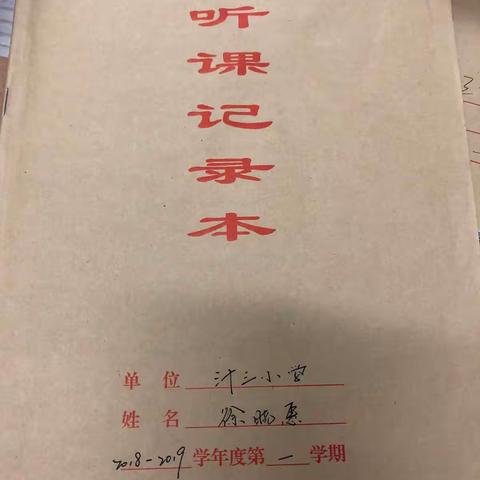 听课记录本
单 位 汁三小学
姓 名 徐晓惠
2018-2019学年度第一学期